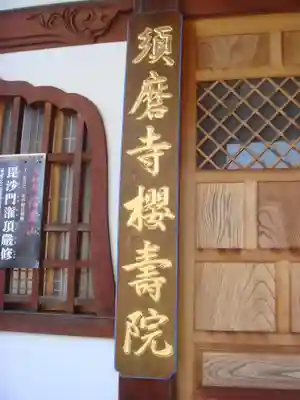 須磨寺櫻壽院
毘沙門灌頂嚴修